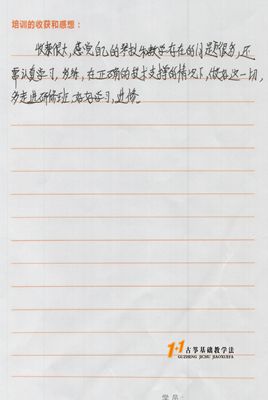 培训的收获和感想：
收获很大，感觉自己的琴技和教学存在的问题很多，还
需认真学习，练练，在正确的技术支撑的情况下，做好这一切，
多走进研修班，好好学习，进修。
1+1古筝基础教学法
GUZHENG JICHU JIAOXUEFA
学员：